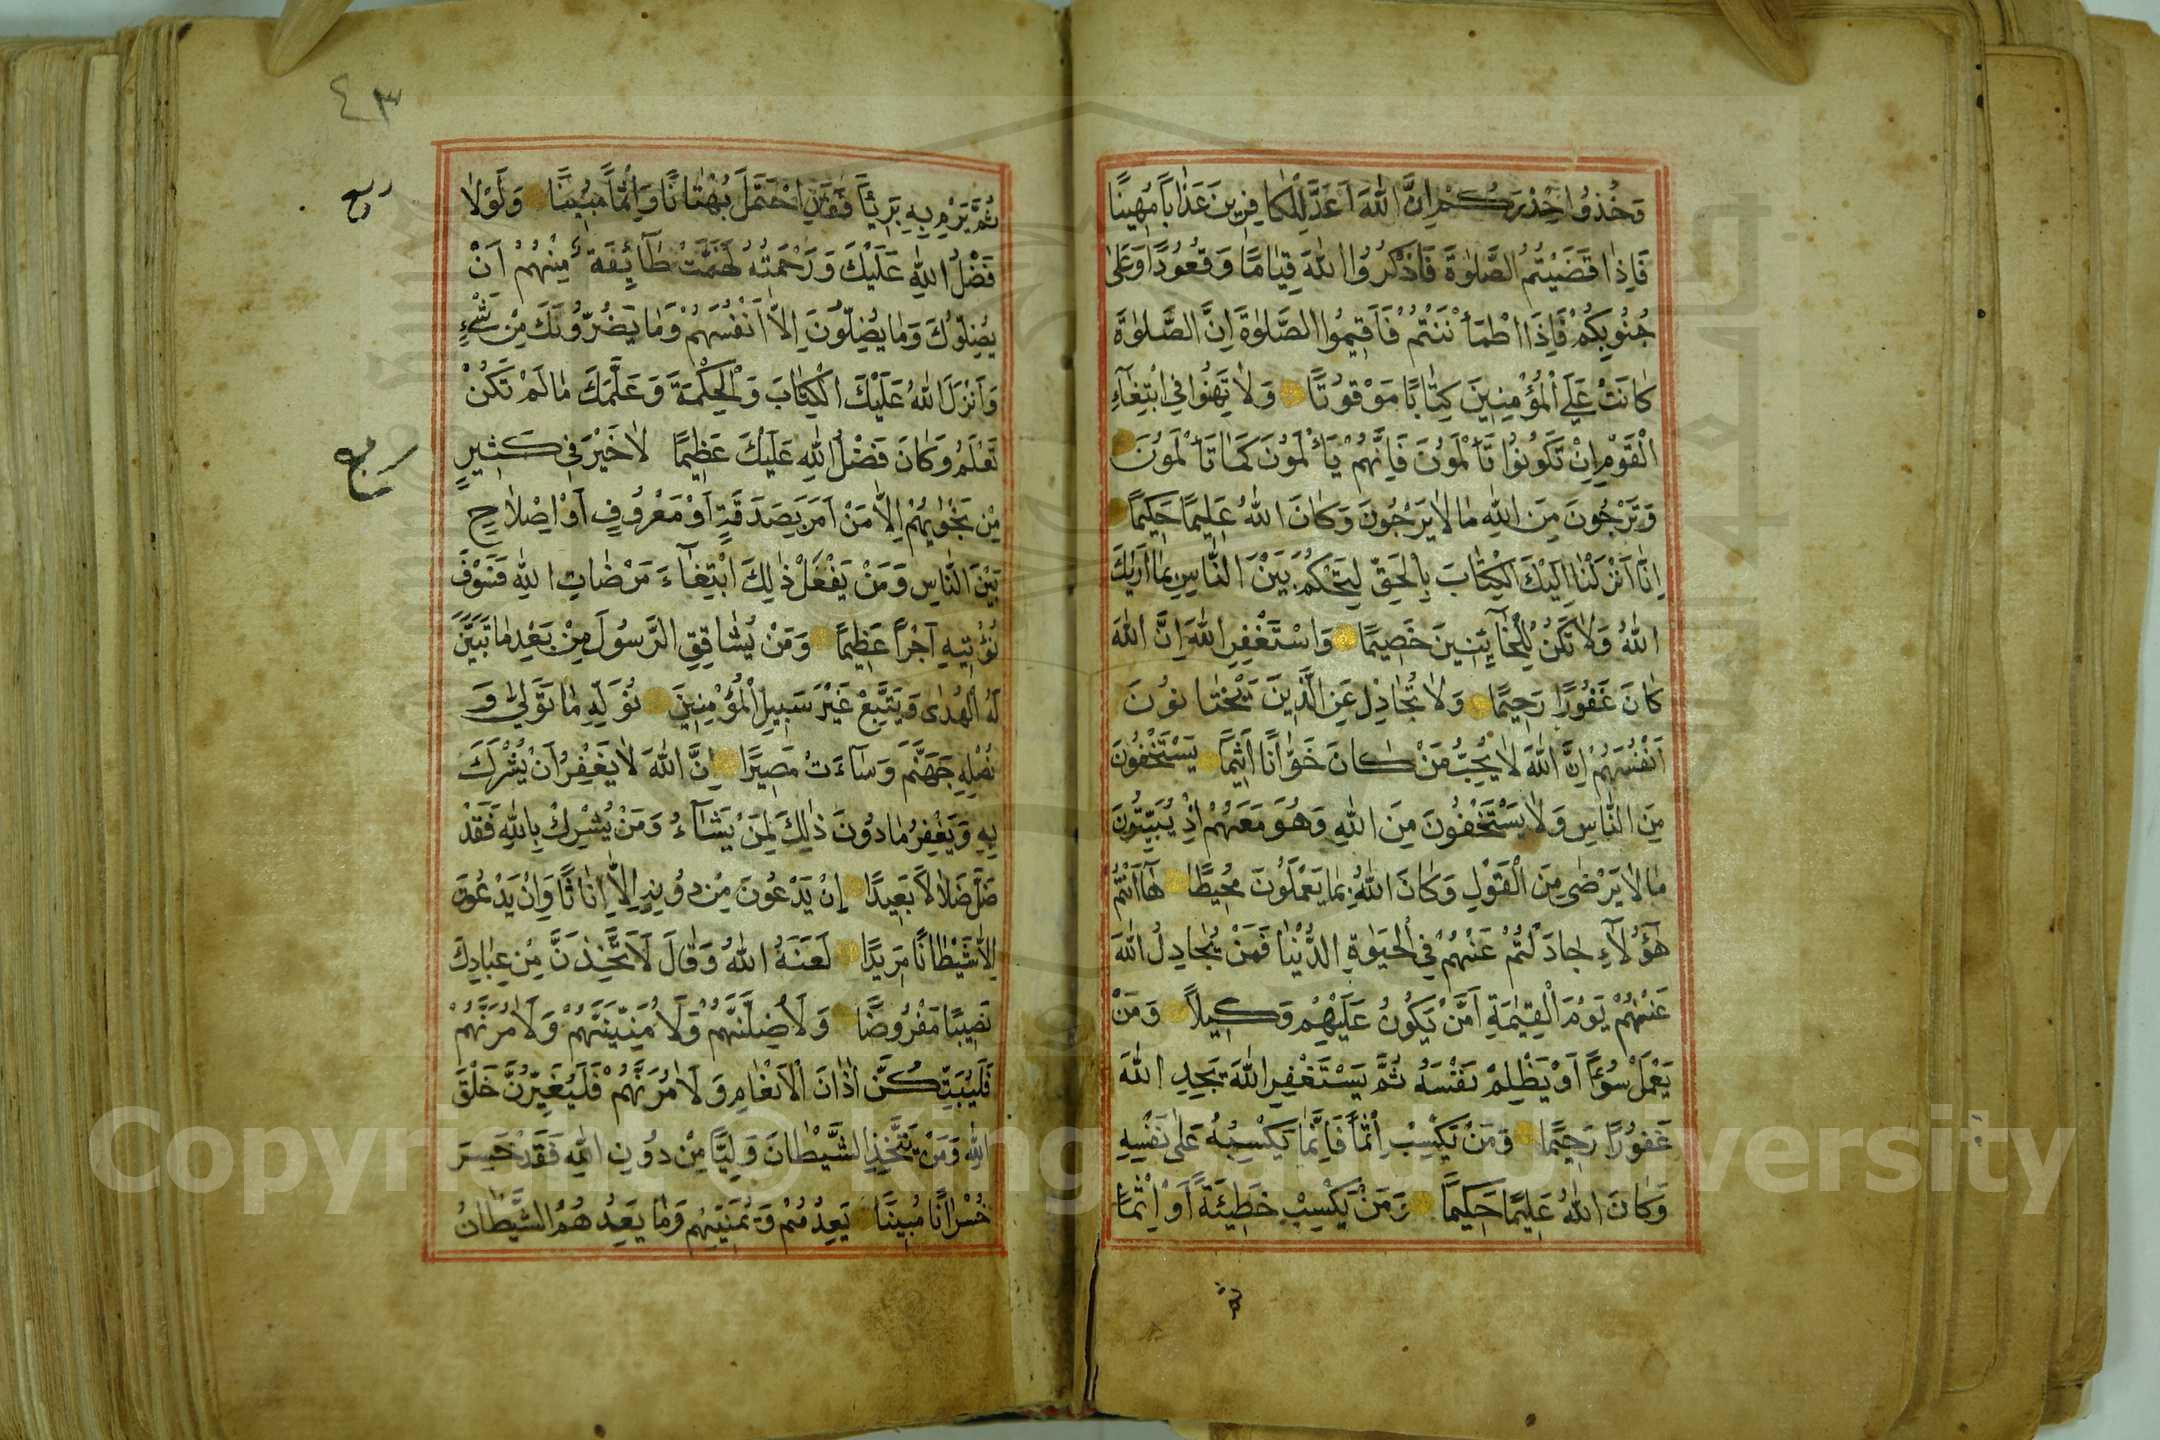 وَخُذُوا حِذْرَكُمْ اِنَّ اللّٰهَ اَعَدَّ لِلْكَافِرِينَ عَذَابًا مُهِينًا
فَاِذَا قَضَيْتُمُ الصَّلٰوةَ فَاذْكُرُوا اللّٰهَ قِيَامًا وَقُعُودًا وَعَلٰى
جُنُوبِكُمْ فَاِذَا اطْمَأْنَنْتُمْ فَاَقِيمُوا الصَّلٰوةَ اِنَّ الصَّلٰوةَ
كَانَتْ عَلَى الْمُؤْمِنِينَ كِتَابًا مَوْقُوتًا وَلَا تَهِنُوا فِي ابْتِغَآءِ
الْقَوْمِ اِنْ تَكُونُوا تَأْلَمُونَ فَاِنَّهُمْ يَأْلَمُونَ كَمَا تَأْلَمُونَ
وَتَرْجُونَ مِنَ اللّٰهِ مَا لَا يَرْجُونَ وَكَانَ اللّٰهُ عَلِيمًا حَكِيمًا
اِنَّا اَنْزَلْنَا اِلَيْكَ الْكِتَابَ بِالْحَقِّ لِتَحْكُمَ بَيْنَ النَّاسِ بِمَا اَرٰيكَ
اللّٰهُ وَلَا تَكُنْ لِلْخَآئِنِينَ خَصِيمًا وَاسْتَغْفِرِ اللّٰهَ اِنَّ اللّٰهَ
كَانَ غَفُورًا رَحِيمًا وَلَا تُجَادِلْ عَنِ الَّذِينَ يَخْتَانُونَ
اَنْفُسَهُمْ اِنَّ اللّٰهَ لَا يُحِبُّ مَنْ كَانَ خَوَّانًا اَثِيمًا يَسْتَخْفُونَ
مِنَ النَّاسِ وَلَا يَسْتَخْفُونَ مِنَ اللّٰهِ وَهُوَ مَعَهُمْ اِذْ يُبَيِّتُونَ
مَا لَا يَرْضٰى مِنَ الْقَوْلِ وَكَانَ اللّٰهُ بِمَا يَعْمَلُونَ مُحِيطًا هَآ اَنْتُمْ
هٰٓؤُلَآءِ جَادَلْتُمْ عَنْهُمْ فِي الْحَيٰوةِ الدُّنْيَا فَمَنْ يُجَادِلُ اللّٰهَ
عَنْهُمْ يَوْمَ الْقِيٰمَةِ اَمَّنْ يَكُونُ عَلَيْهِمْ وَكِيلًا وَمَنْ
يَعْمَلْ سُوٓءًا اَوْ يَظْلِمْ نَفْسَهُ ثُمَّ يَسْتَغْفِرِ اللّٰهَ يَجِدِ اللّٰهَ
غَفُورًا رَحِيمًا وَمَنْ يَكْسِبْ اِثْمًا فَاِنَّمَا يَكْسِبُهُ عَلٰى نَفْسِهِ
وَكَانَ اللّٰهُ عَلِيمًا حَكِيمًا وَمَنْ يَكْسِبْ خَطِيئَةً اَوْ اِثْمًا
ثم
٤٣
ثُمَّ يَرْمِ بِهِ بَرِيئًا فَقَدِ احْتَمَلَ بُهْتَانًا وَاِثْمًا مُبِينًا وَلَوْلَا
فَضْلُ اللّٰهِ عَلَيْكَ وَرَحْمَتُهُ لَهَمَّتْ طَآئِفَةٌ مِنْهُمْ اَنْ
يُضِلُّوكَ وَمَا يُضِلُّونَ اِلَّا اَنْفُسَهُمْ وَمَا يَضُرُّونَكَ مِنْ شَيْءٍ
وَاَنْزَلَ اللّٰهُ عَلَيْكَ الْكِتَابَ وَالْحِكْمَةَ وَعَلَّمَكَ مَا لَمْ تَكُنْ
تَعْلَمُ وَكَانَ فَضْلُ اللّٰهِ عَلَيْكَ عَظِيمًا لَا خَيْرَ فِي كَثِيرٍ
مِنْ نَجْوٰيهُمْ اِلَّا مَنْ اَمَرَ بِصَدَقَةٍ اَوْ مَعْرُوفٍ اَوْ اِصْلَاحٍ
بَيْنَ النَّاسِ وَمَنْ يَفْعَلْ ذٰلِكَ ابْتِغَآءَ مَرْضَاتِ اللّٰهِ فَسَوْفَ
نُؤْتِيهِ اَجْرًا عَظِيمًا وَمَنْ يُشَاقِقِ الرَّسُولَ مِنْ بَعْدِ مَا تَبَيَّنَ
لَهُ الْهُدٰى وَيَتَّبِعْ غَيْرَ سَبِيلِ الْمُؤْمِنِينَ نُوَلِّهِ مَا تَوَلّٰى وَ
نُصْلِهِ جَهَنَّمَ وَسَآءَتْ مَصِيرًا اِنَّ اللّٰهَ لَا يَغْفِرُ اَنْ يُشْرَكَ
بِهِ وَيَغْفِرُ مَا دُونَ ذٰلِكَ لِمَنْ يَشَآءُ وَمَنْ يُشْرِكْ بِاللّٰهِ فَقَدْ
ضَلَّ ضَلَالًا بَعِيدًا اِنْ يَدْعُونَ مِنْ دُونِهِ اِلَّا اِنَاثًا وَاِنْ يَدْعُونَ
اِلَّا شَيْطَانًا مَرِيدًا لَعَنَهُ اللّٰهُ وَقَالَ لَاَتَّخِذَنَّ مِنْ عِبَادِكَ
نَصِيبًا مَفْرُوضًا وَلَاُضِلَّنَّهُمْ وَلَاُمَنِّيَنَّهُمْ وَلَاٰمُرَنَّهُمْ
فَلَيُبَتِّكُنَّ اٰذَانَ الْاَنْعَامِ وَلَاٰمُرَنَّهُمْ فَلَيُغَيِّرُنَّ خَلْقَ
اللّٰهِ وَمَنْ يَتَّخِذِ الشَّيْطَانَ وَلِيًّا مِنْ دُونِ اللّٰهِ فَقَدْ خَسِرَ
خُسْرَانًا مُبِينًا يَعِدُهُمْ وَيُمَنِّيهِمْ وَمَا يَعِدُهُمُ الشَّيْطَانُ
Copyright © King Saud University